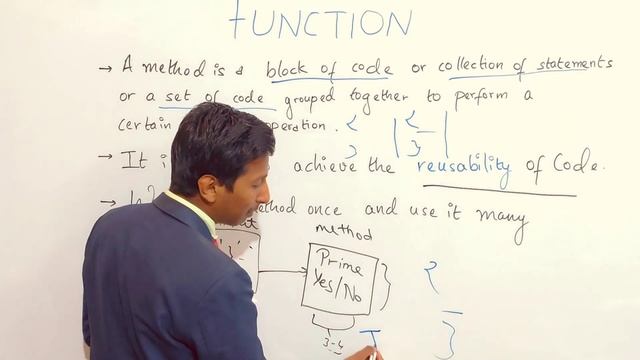 FUNCTION
→ A method is a block of code or collection of statements
or a set of code grouped together to perform a
certain operation.
→ It achieve the reusability of Code.
→ method once and use it many
method
Prime
Yes/No
3-4